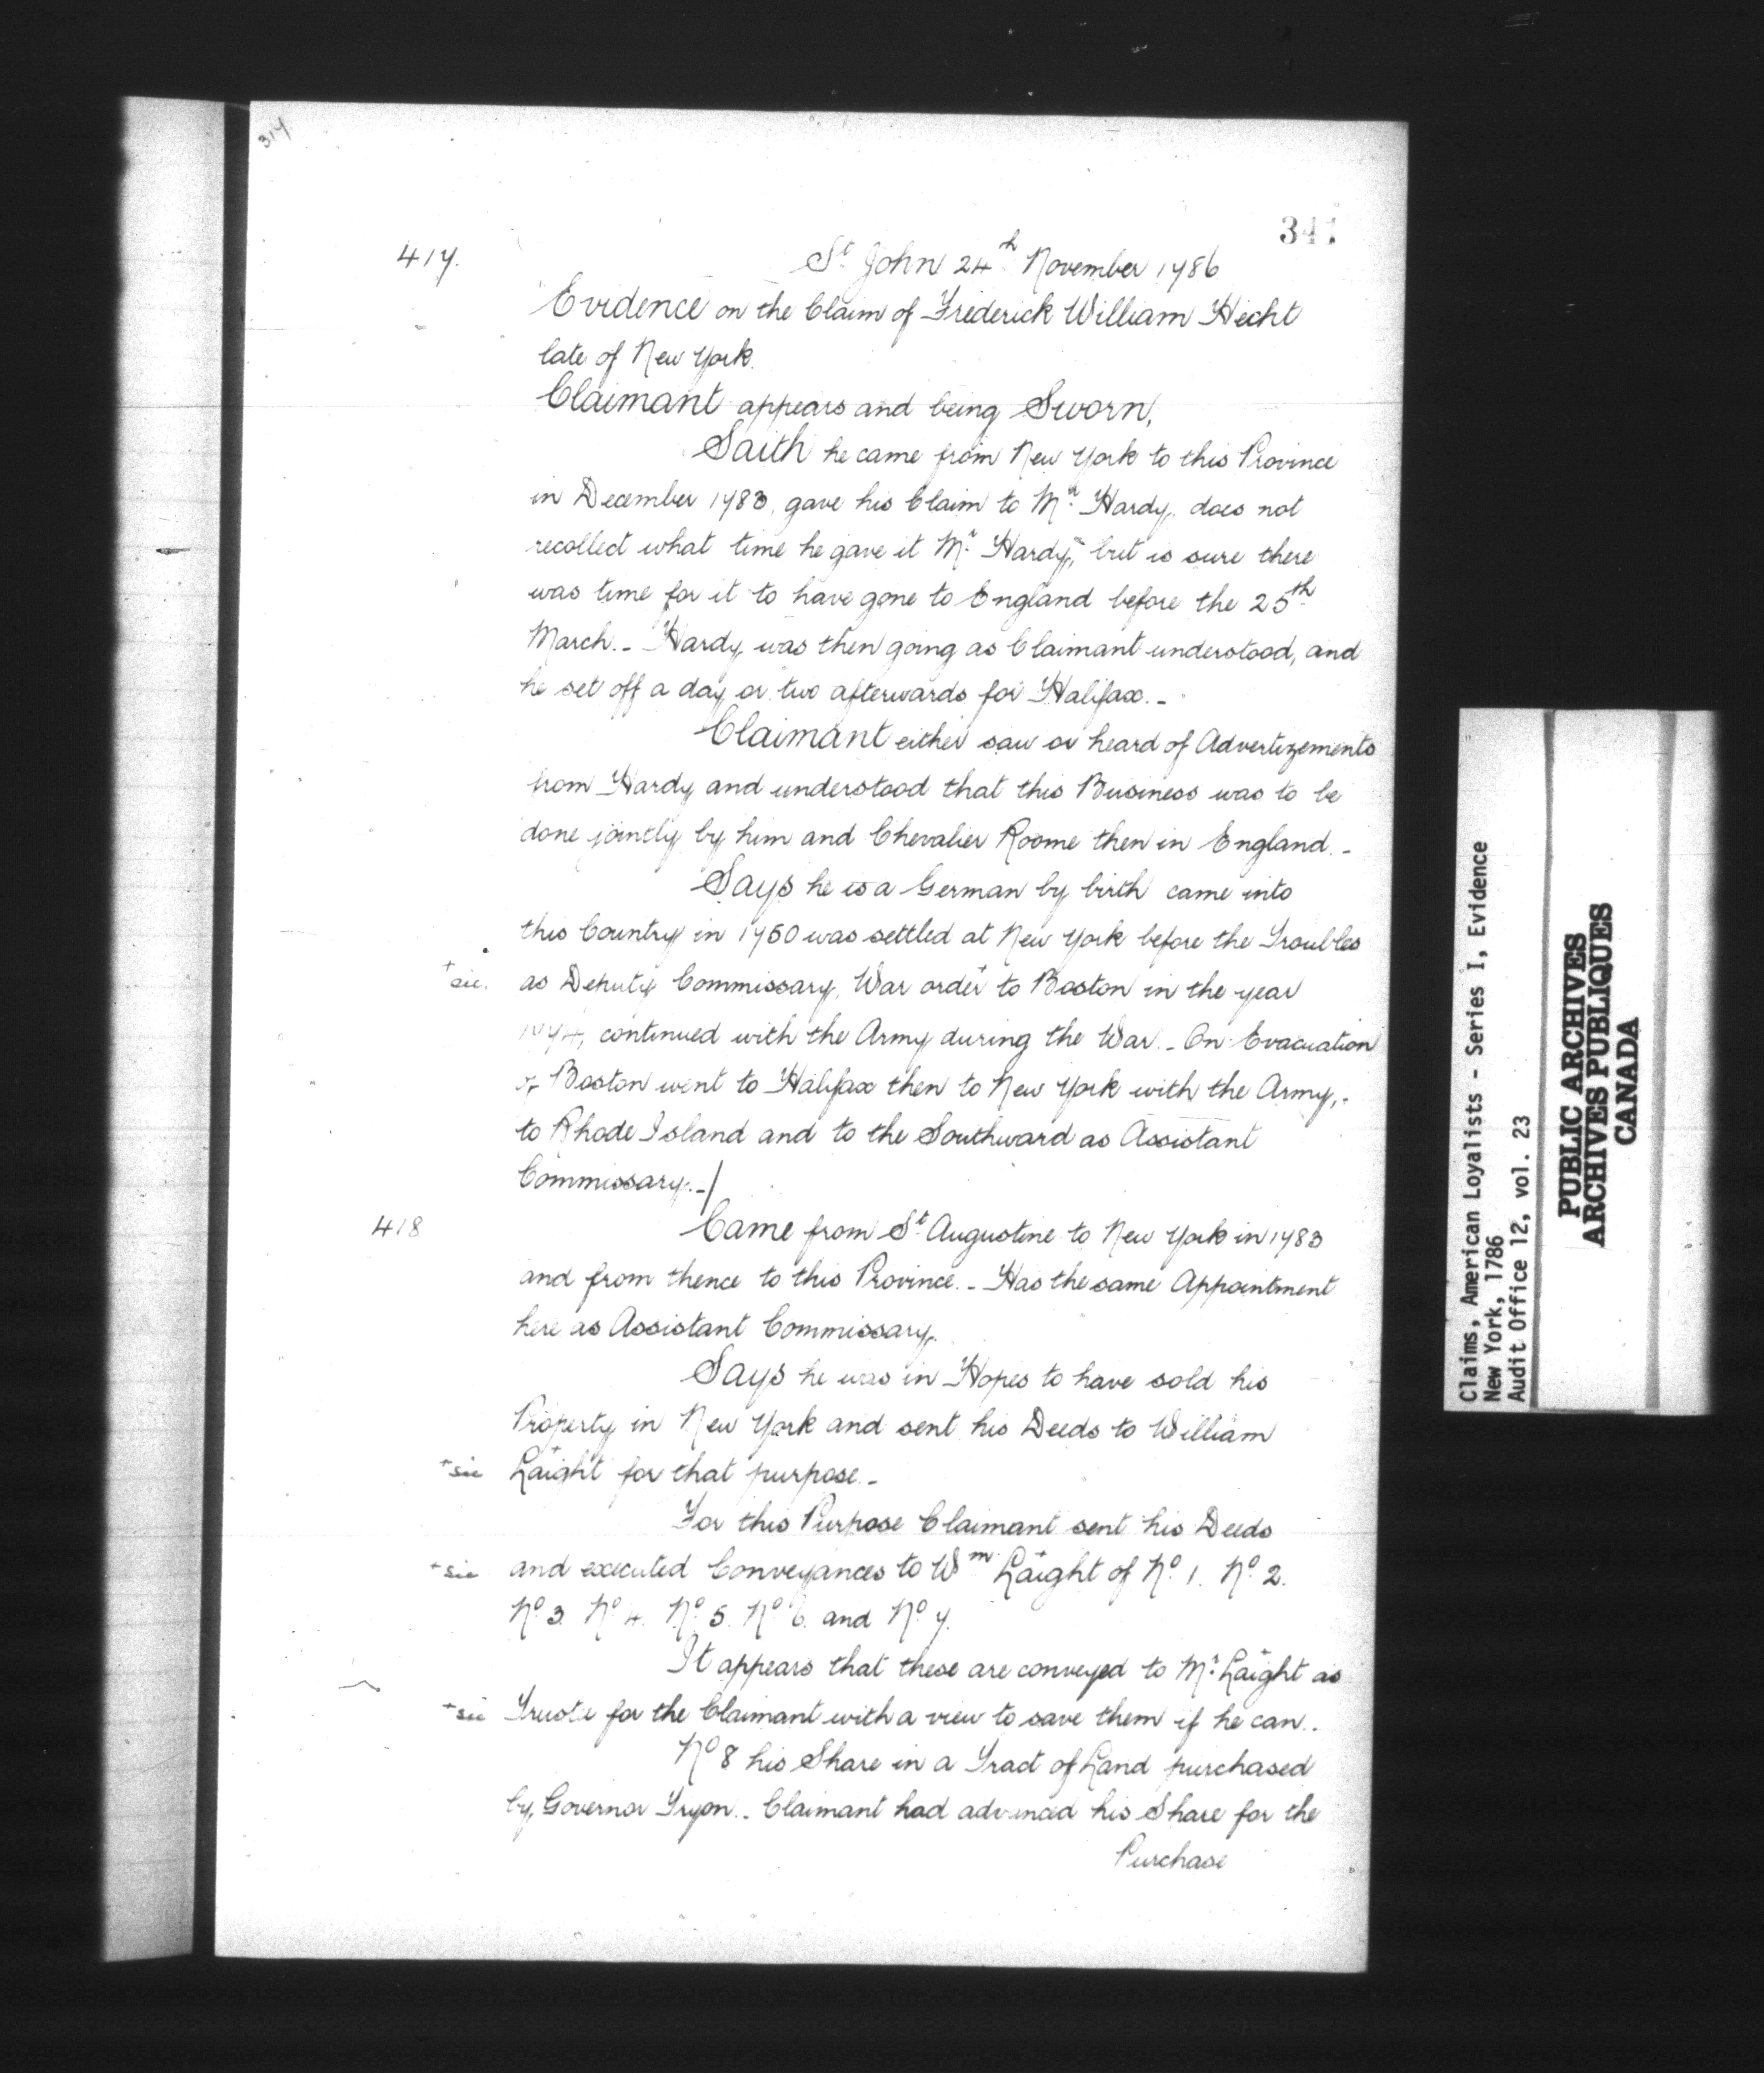 314
341
417.
St. John 24th November 1786
Evidence on the Claim of Frederick William Hecht
late of New York.
Claimant appears and being Sworn,
Saith he came from New York to this Province
in December 1783, gave his Claim to Mr. Hardy, does not
recollect what time he gave it Mr. Hardy, but is sure there
was time for it to have gone to England before the 25th
March. - Hardy was then going as Claimant understood, and
he set off a day or two afterwards for Halifax. -
Claimant either saw or heard of Advertizements
from Hardy and understood that this Business was to be
done jointly by him and Chevalier Roome then in England. -
Says he is a German by birth came into
this Country in 1750 was settled at New York before the Troubles
+ sic. as Deputy Commissary, War order+ to Boston in the year
1774, continued with the Army during the War. - On Evacuation
of Boston went to Halifax then to New York with the Army, -
to Rhode Island and to the Southward as Assistant
Commissary. -/
418
Came from St. Augustine to New York in 1783
and from thence to this Province. - Has the same Appointment
here as Assistant Commissary.
Says he was in Hopes to have sold his
Property in New York and sent his Deeds to William
+ sic Laight+ for that purpose. -
For this Purpose Claimant sent his Deeds
+ sic and executed Conveyances to Wm. Laight+ of No. 1. No. 2.
No. 3. No. 4. No. 5. No. 6. and No. 7.
It appears that these are conveyed to Mr. Laight+ as
+ sic Trustee for the Claimant with a view to save them if he can. -
No. 8 his Share in a Tract of Land purchased
by Governor Tryon. - Claimant had advanced his Share for the
Purchase
Claims, American Loyalists - Series I, Evidence
New York, 1786
Audit Office 12, vol. 23
PUBLIC ARCHIVES
ARCHIVES PUBLIQUES
CANADA